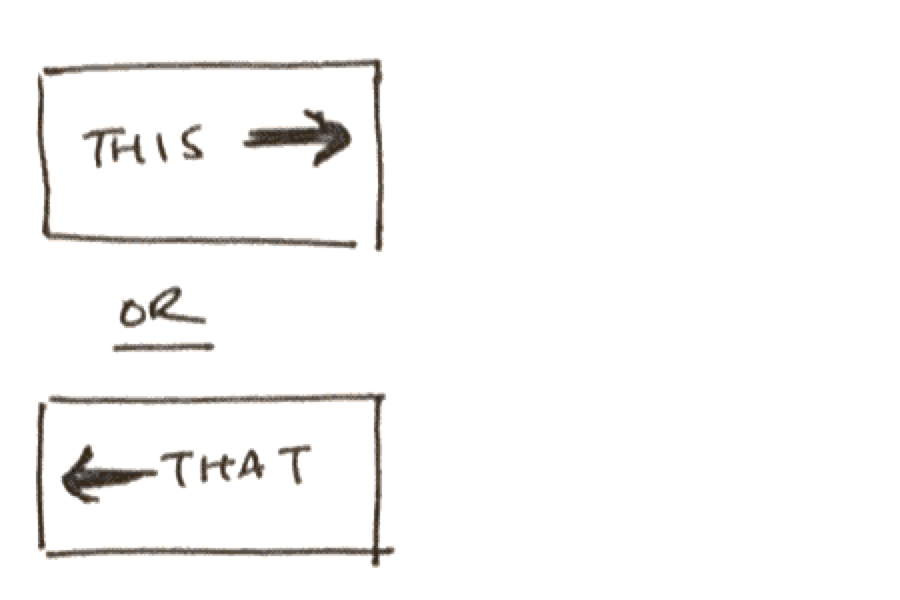 THIS
OR
THAT